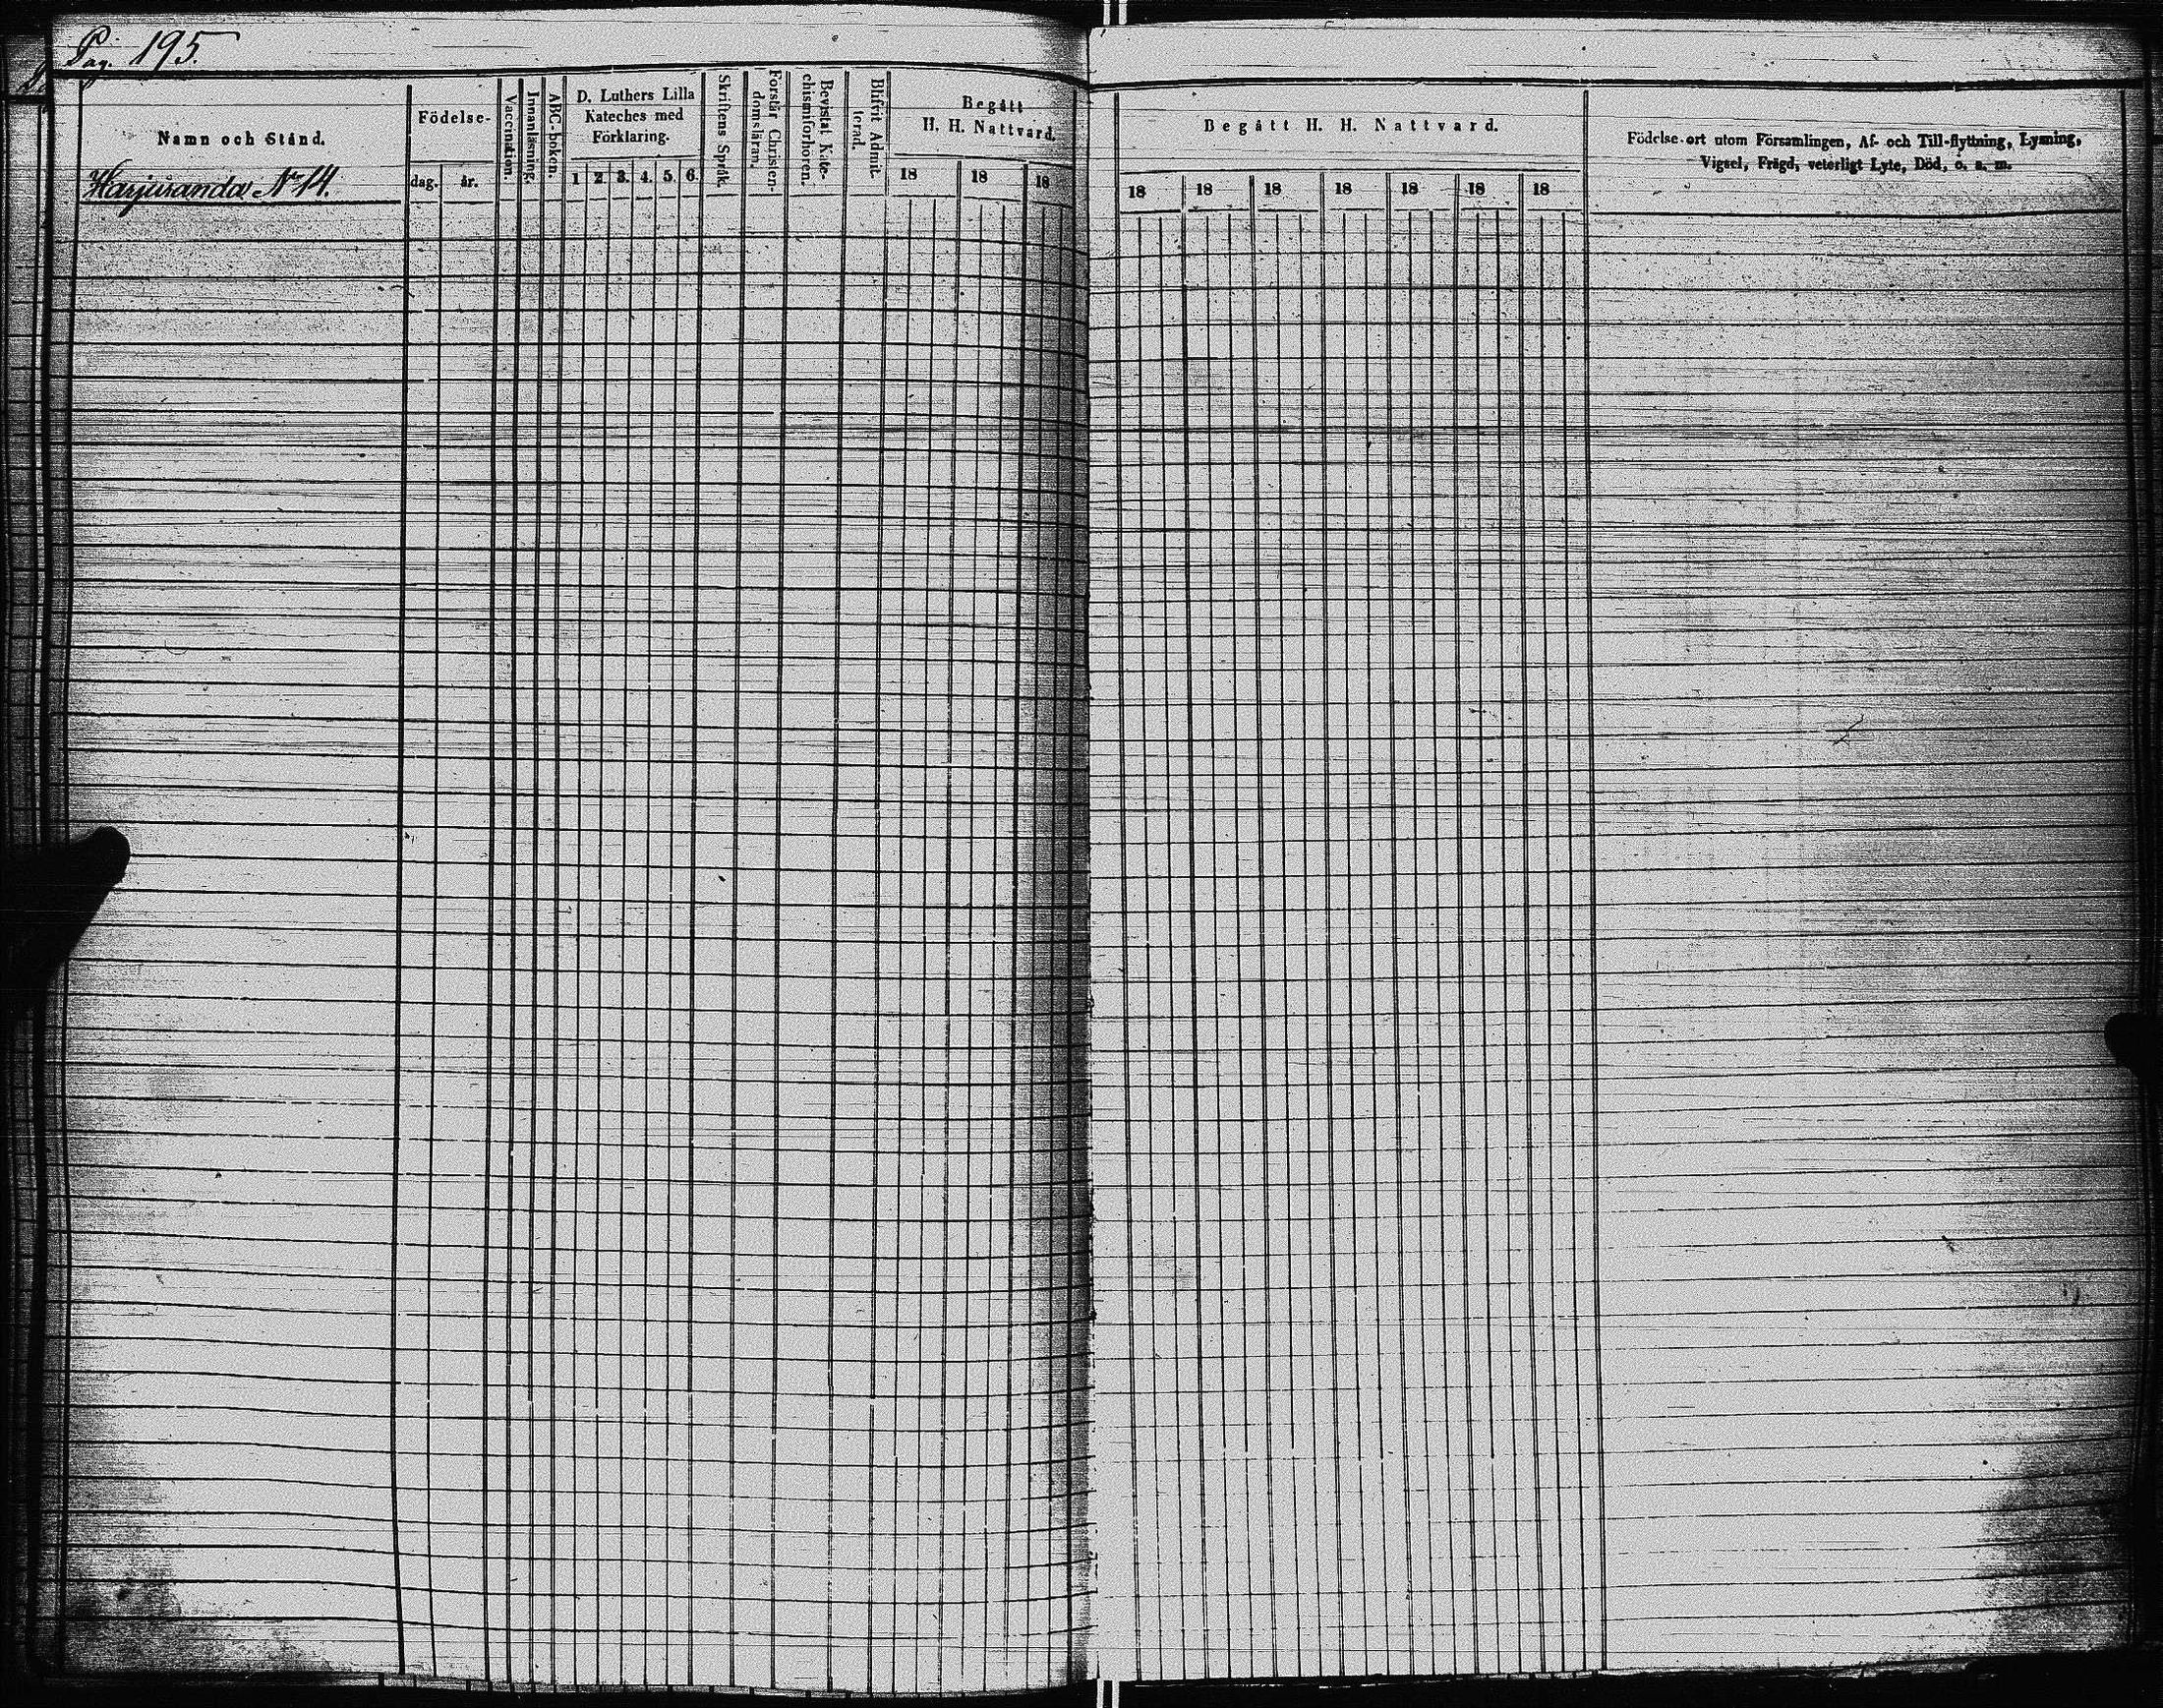 Pag. 195.
Namn och Stånd.
Harjuranda No 14.
Födelse-
dag.
år.
Vaccination.
Innanläsning.
ABC-boken.
D. Luthers Lilla
Kateches med
Förklaring.
1 2 3. 4. 5. 6.
Skriftens Språk.
Förstår Christen-
domsläran.
Bevistat Kate-
chismiförhören.
Blifvit Admit-
terad.
Begått
H. H. Nattvard.
18 18 18
Begått H. H. Nattvard.
18 18 18 18 18 18 18
Födelse-ort utom Församlingen, Af- och Till-flyttning, Lysning,
Vigsel, Frägd, veterligt Lyte, Död, o. s. m.